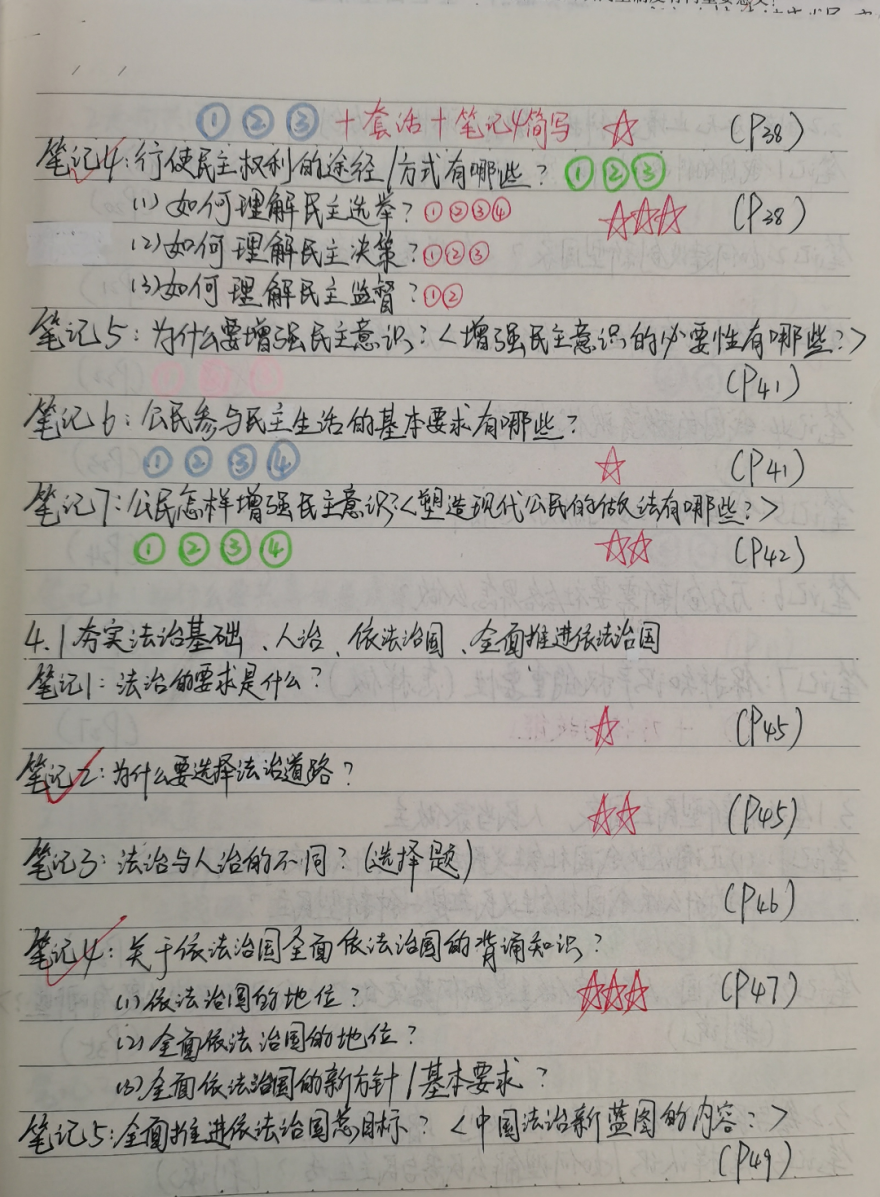 ①②③+套话+笔记4简写 ☆ (P38)
笔记4:行使民主权利的途径/方式有哪些? ①②③
(1)如何理解民主选举?①②③④ ☆☆☆ (P38)
(2)如何理解民主决策?①②③
(3)如何理解民主监督?①②
笔记5:为什么要增强民主意识?<增强民主意识的必要性有哪些?>
①②③ (P41)
笔记6:公民参与民主生活的基本要求有哪些?
①②③④ ☆ (P41)
笔记7:公民怎样增强民主意识?<塑造现代公民的做法有哪些?>
①②③④ ☆☆ (P42)
4.1夯实法治基础、人治、依法治国、全面推进依法治国
笔记1:法治的要求是什么?
☆ (P45)
笔记2:为什么要选择法治道路?
☆☆ (P45)
笔记3:法治与人治的不同?(选择题)
(P46)
笔记4:关于依法治国全面依法治国的背诵知识?
(1)依法治国的地位? ☆☆☆ (P47)
(2)全面依法治国的地位?
(3)全面依法治国的新方针/基本要求?
笔记5:全面推进依法治国总目标?<中国法治新蓝图的内容?>
(P49)